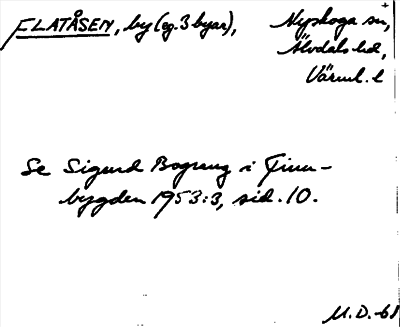 FLATÅSEN, by (eg. 3 byar), Nyskoga sn,
Älvdals hd,
Värml. l
Se Sigurd Bograng i Finn-
bygden 1953:3, sid. 10.
M.D.-61